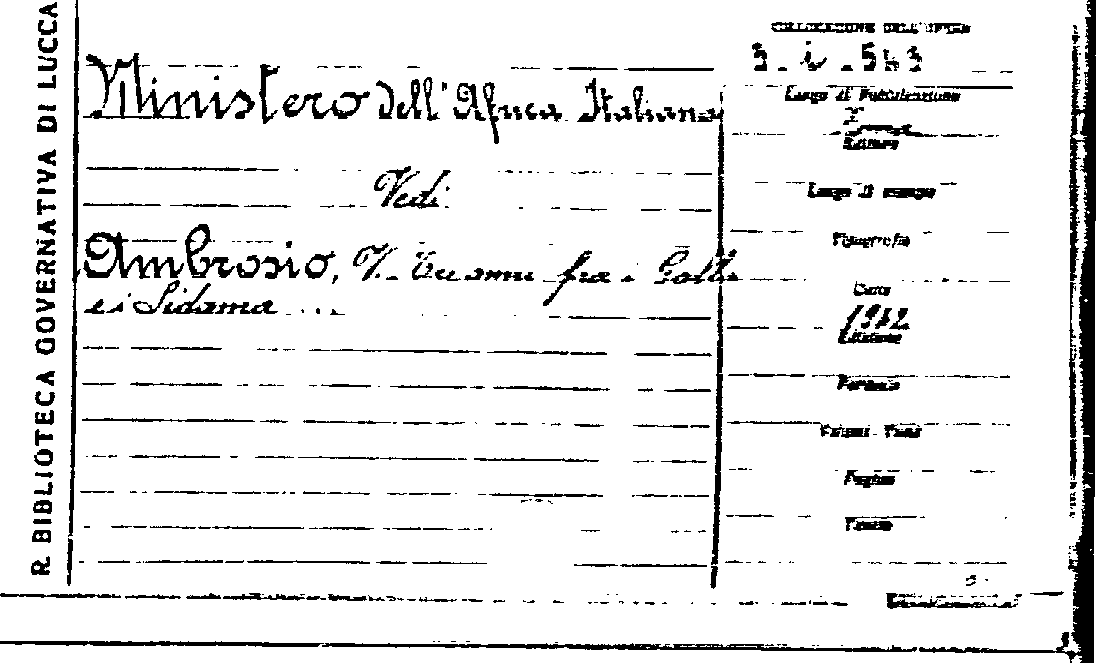 R. BIBLIOTECA GOVERNATIVA DI LUCCA
COLLOCAZIONE DELL'OPERA
Ministero dell'Africa Italiana
Luogo di Pubblicazione
Editore
Vedi
Luogo di stampa
Tipografia
Ambrosio, V. Tre anni fra i Galla
e i Sidama ...
Data
1942
Edizione
Formato
Volumi - Tomi
Pagine